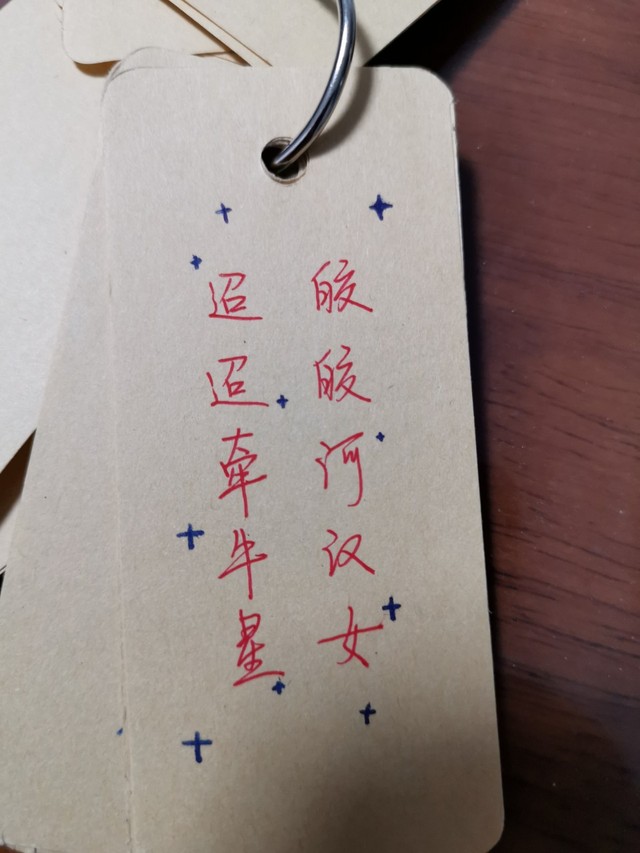 迢迢牵牛星
皎皎河汉女